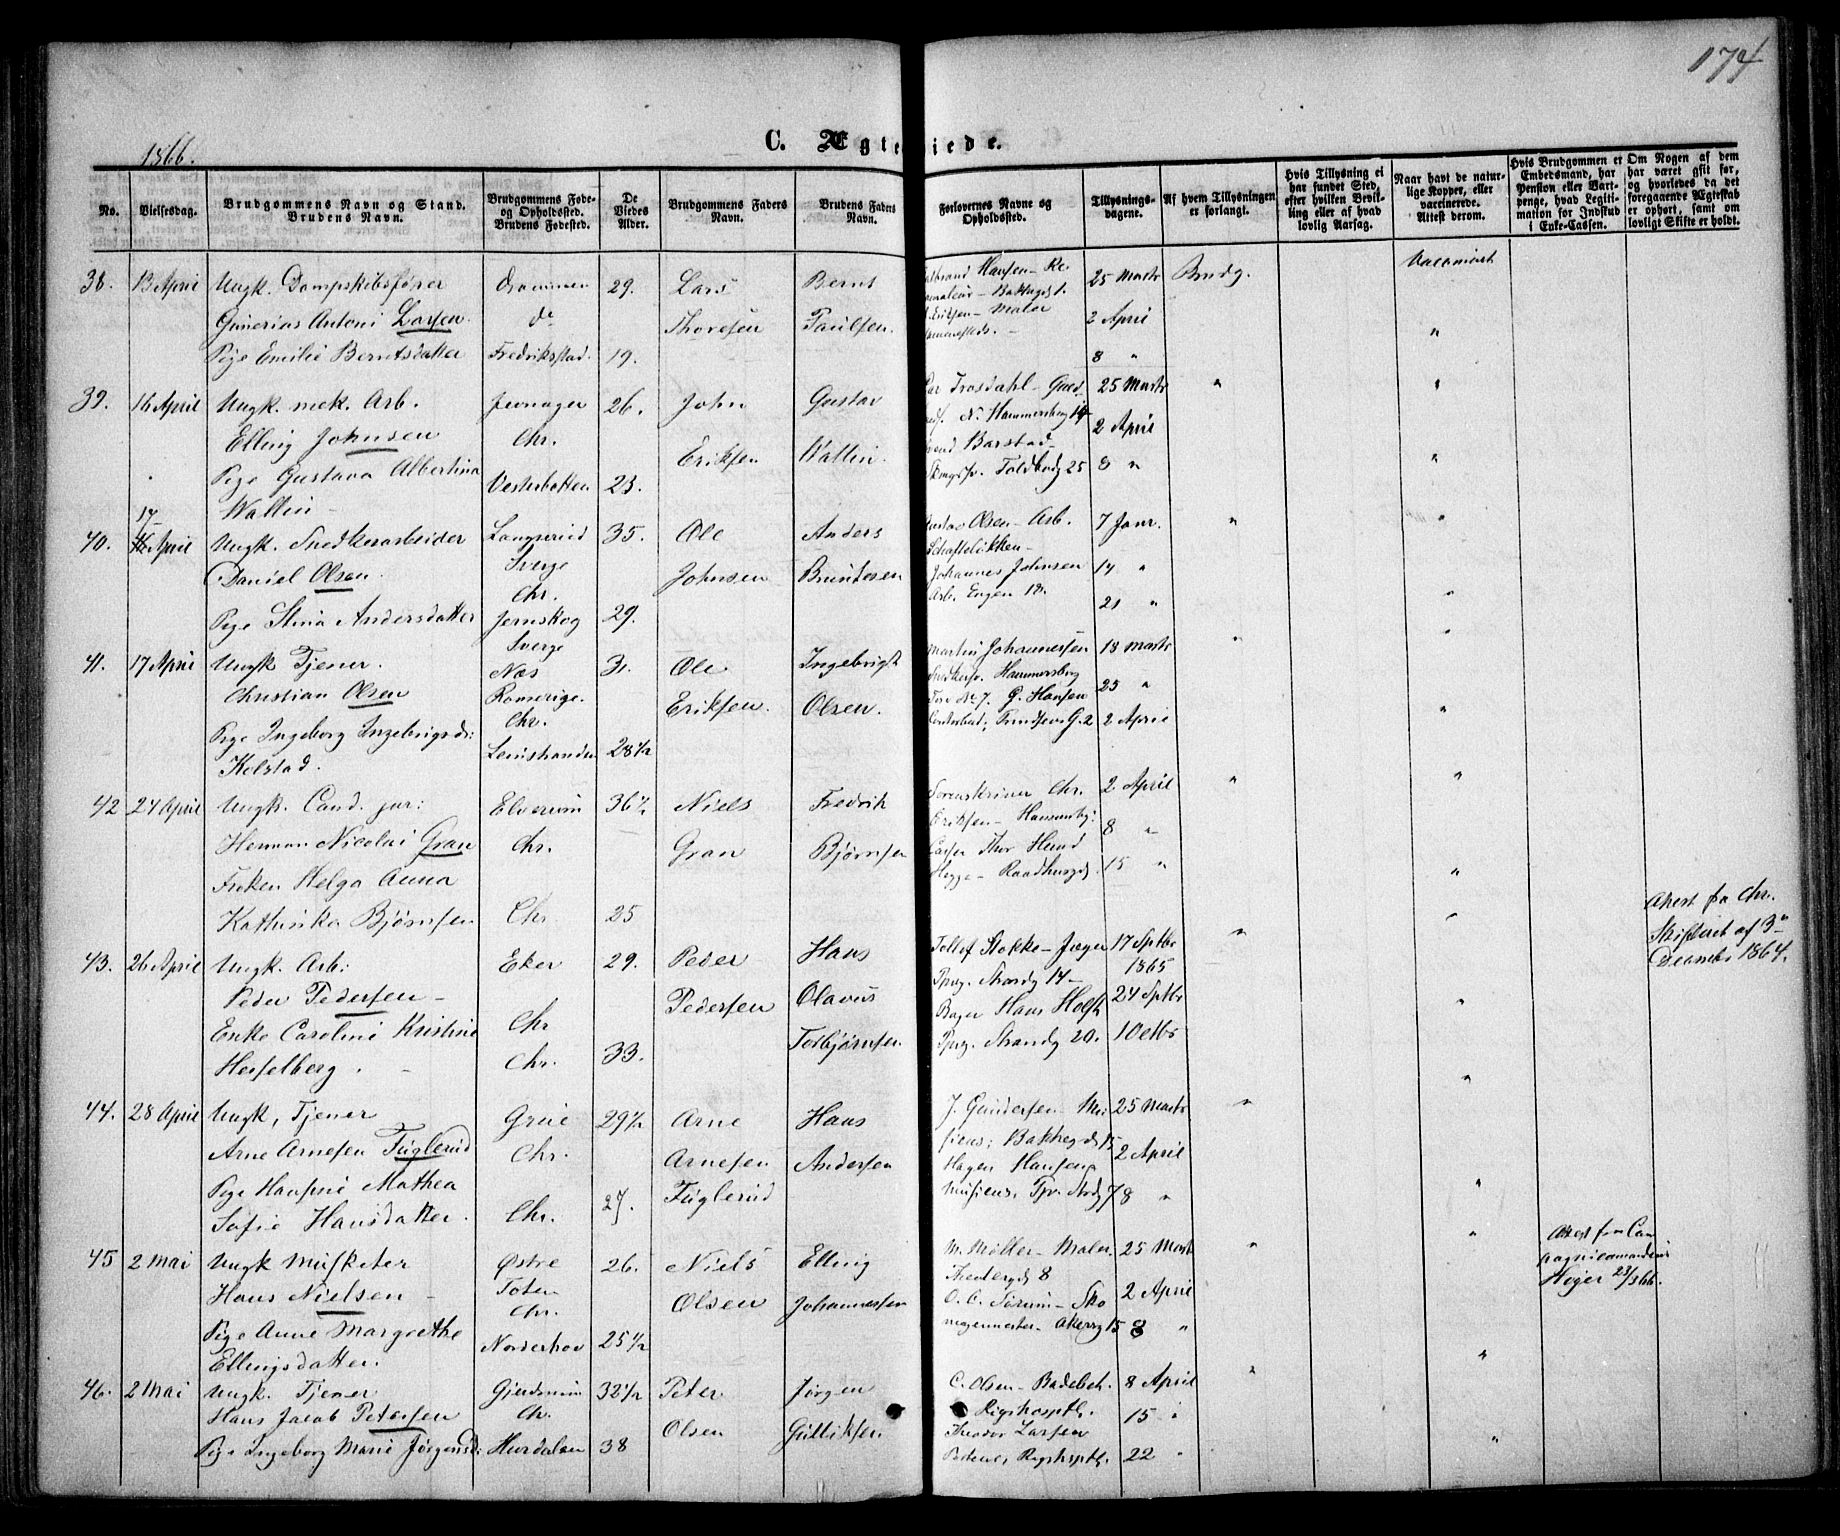 174
1866.
C. Ægteviede.
No.
Vielsesdag.
Brudgommens Navn og Stand.
Brudens Navn.
Brudgommens Føde- og Opholdssted.
Brudens Fødested.
De Viedes Alder.
Brudgommens Faders Navn.
Brudens Faders Navn.
Forlovernes Navne og Opholdssted.
Tillysnings-dagene.
Af hvem Tillysningen er forlangt.
Hvis Tillysning ei har fundet Sted, efter hvilken Bevilling eller af hvad lovlig Aarsag.
Naar havt de naturlige Kopper, eller vaccinerede. Attest derom.
Hvis Brudgommen er Embedsmand, har Pension eller Vartpenge, hvad Legitimation for Indskud i Enke-Cassen.
Om Nogen af dem har været gift før, og hvorledes da det foregaaende Ægteskab er ophørt, samt om lovligt Skifte er holdt.
38. 13 April Ungk. Dampskibsfører Drammen 29. Lars Bernt Hansen 25 Marts Brudg.
Gunerius Antoni Larsen do Thoresen Paulsen. Eriksen - Maler 2 April "
Pige Emilie Berntsdatter Fredrikstad. 19. 8 "
39. 16 April Ungk. mek. Arb. Jevnager 26. John Gustav Trosdahl 25 Marts " "
Elling Johnsen Chr. Eriksen Wallin. N. Hammersborg 14 2 April
Pige Gustava Albertina Vesterbotten 23. Barstad 8 " "
Wallin Toldbodg 25
40. 17 April Ungk. Snedkerarbeider 35. Ole Anders Olsen - Arb. 7 Janr. " "
Daniel Olsen. Sverge Johnsen Johannes Johnsen 14 "
Chr. Arb. Engen 18. "
Pige Stina Andersdatter Jernskog 29. 21 "
Sverge
41. 17 April Ungk Tjener. Næs 31. Ole Ingebrigt Martin Johannesen 18 Marts " "
Christian Olsen Romerige. Eriksen. Olsen. Hammersborg 25 "
Chr. No 7. G. Hansen
Pige Ingeborg Ingebrigsd: 28 1/2 2 April "
Kolstad.
42 24 April Ungk. Cand. jur: Elverum 36 1/2 Niels Fredrik Sorenskriver Chr. 2 April " "
Herman Nicolai Gran Chr. Gran Bjørnsen Eriksen 8 "
Frøken Helga Anna Raadhusgd. 15 " "
Kathrinka Bjørnsen Chr. 25
Attest fra Chr.
Skifteret af 3
Decembr 1864.
43. 26 April Ungk. Arb: Eker 29. Peder Hans Tollof Stokke - Jæger 17 Sptbr "
Peder Pedersen Chr Pedersen Olavus 1865
Enke Caroline Kristine Chr. 33. Torbjørnsen Hans Holst 24 Sptbr "
Hesselberg. Strandg 20. 1 Octbr "
44. 28 April Ungk, Tjener Grue 29 1/2 Arne Hans J. Gundersen 25 Marts "
Arne Arnesen Fuglerud Chr. Arnesen Andersen Bakkegd 15 2 April
Pige Mathea Fuglerud Hagen Hansen 8 " "
Sofie Hansdatter. Chr. 27.
45 2 Mai Ungk Musketer Østre 26. Niels Elling M. Møller - Maler 25 Marts " "
Hans Nielsen Toten Olsen Johannessen Theatergd 8
Chr. O. C. Sørum - Sko 2 April
Pige Anne Margrethe Norderhov 25 1/2 magermester - Akersg 15 8 " "
Ellingsdatter.
Attest fra
Høyer 23/3 66.
46. 2 Mai Ungk. Tjener Gjerdrum 32 1/2 Peter Jørgen C. Olsen - Badebet. 8 April "
Hans Jacob Petersen Ch. Olsen Gulliksen Rigshosptl. 15 "
Pige Ingeborg Marie Jørgensd: Hurdalen 38 Theodor Larsen 22 " "
Rigshsptl.